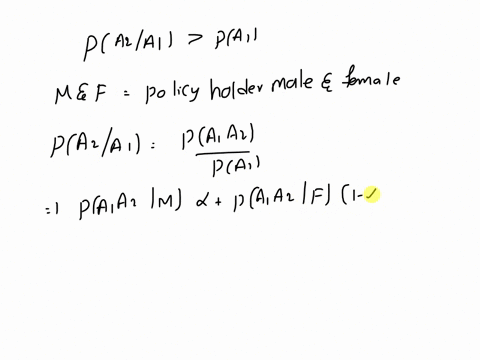 P(A2/A1) > P(A1)
M & F = policy holder male & female
P(A2/A1) = P(A1 A2) / P(A1)
=) P(A1 A2 | M) α + P(A1 A2 | F) (1-